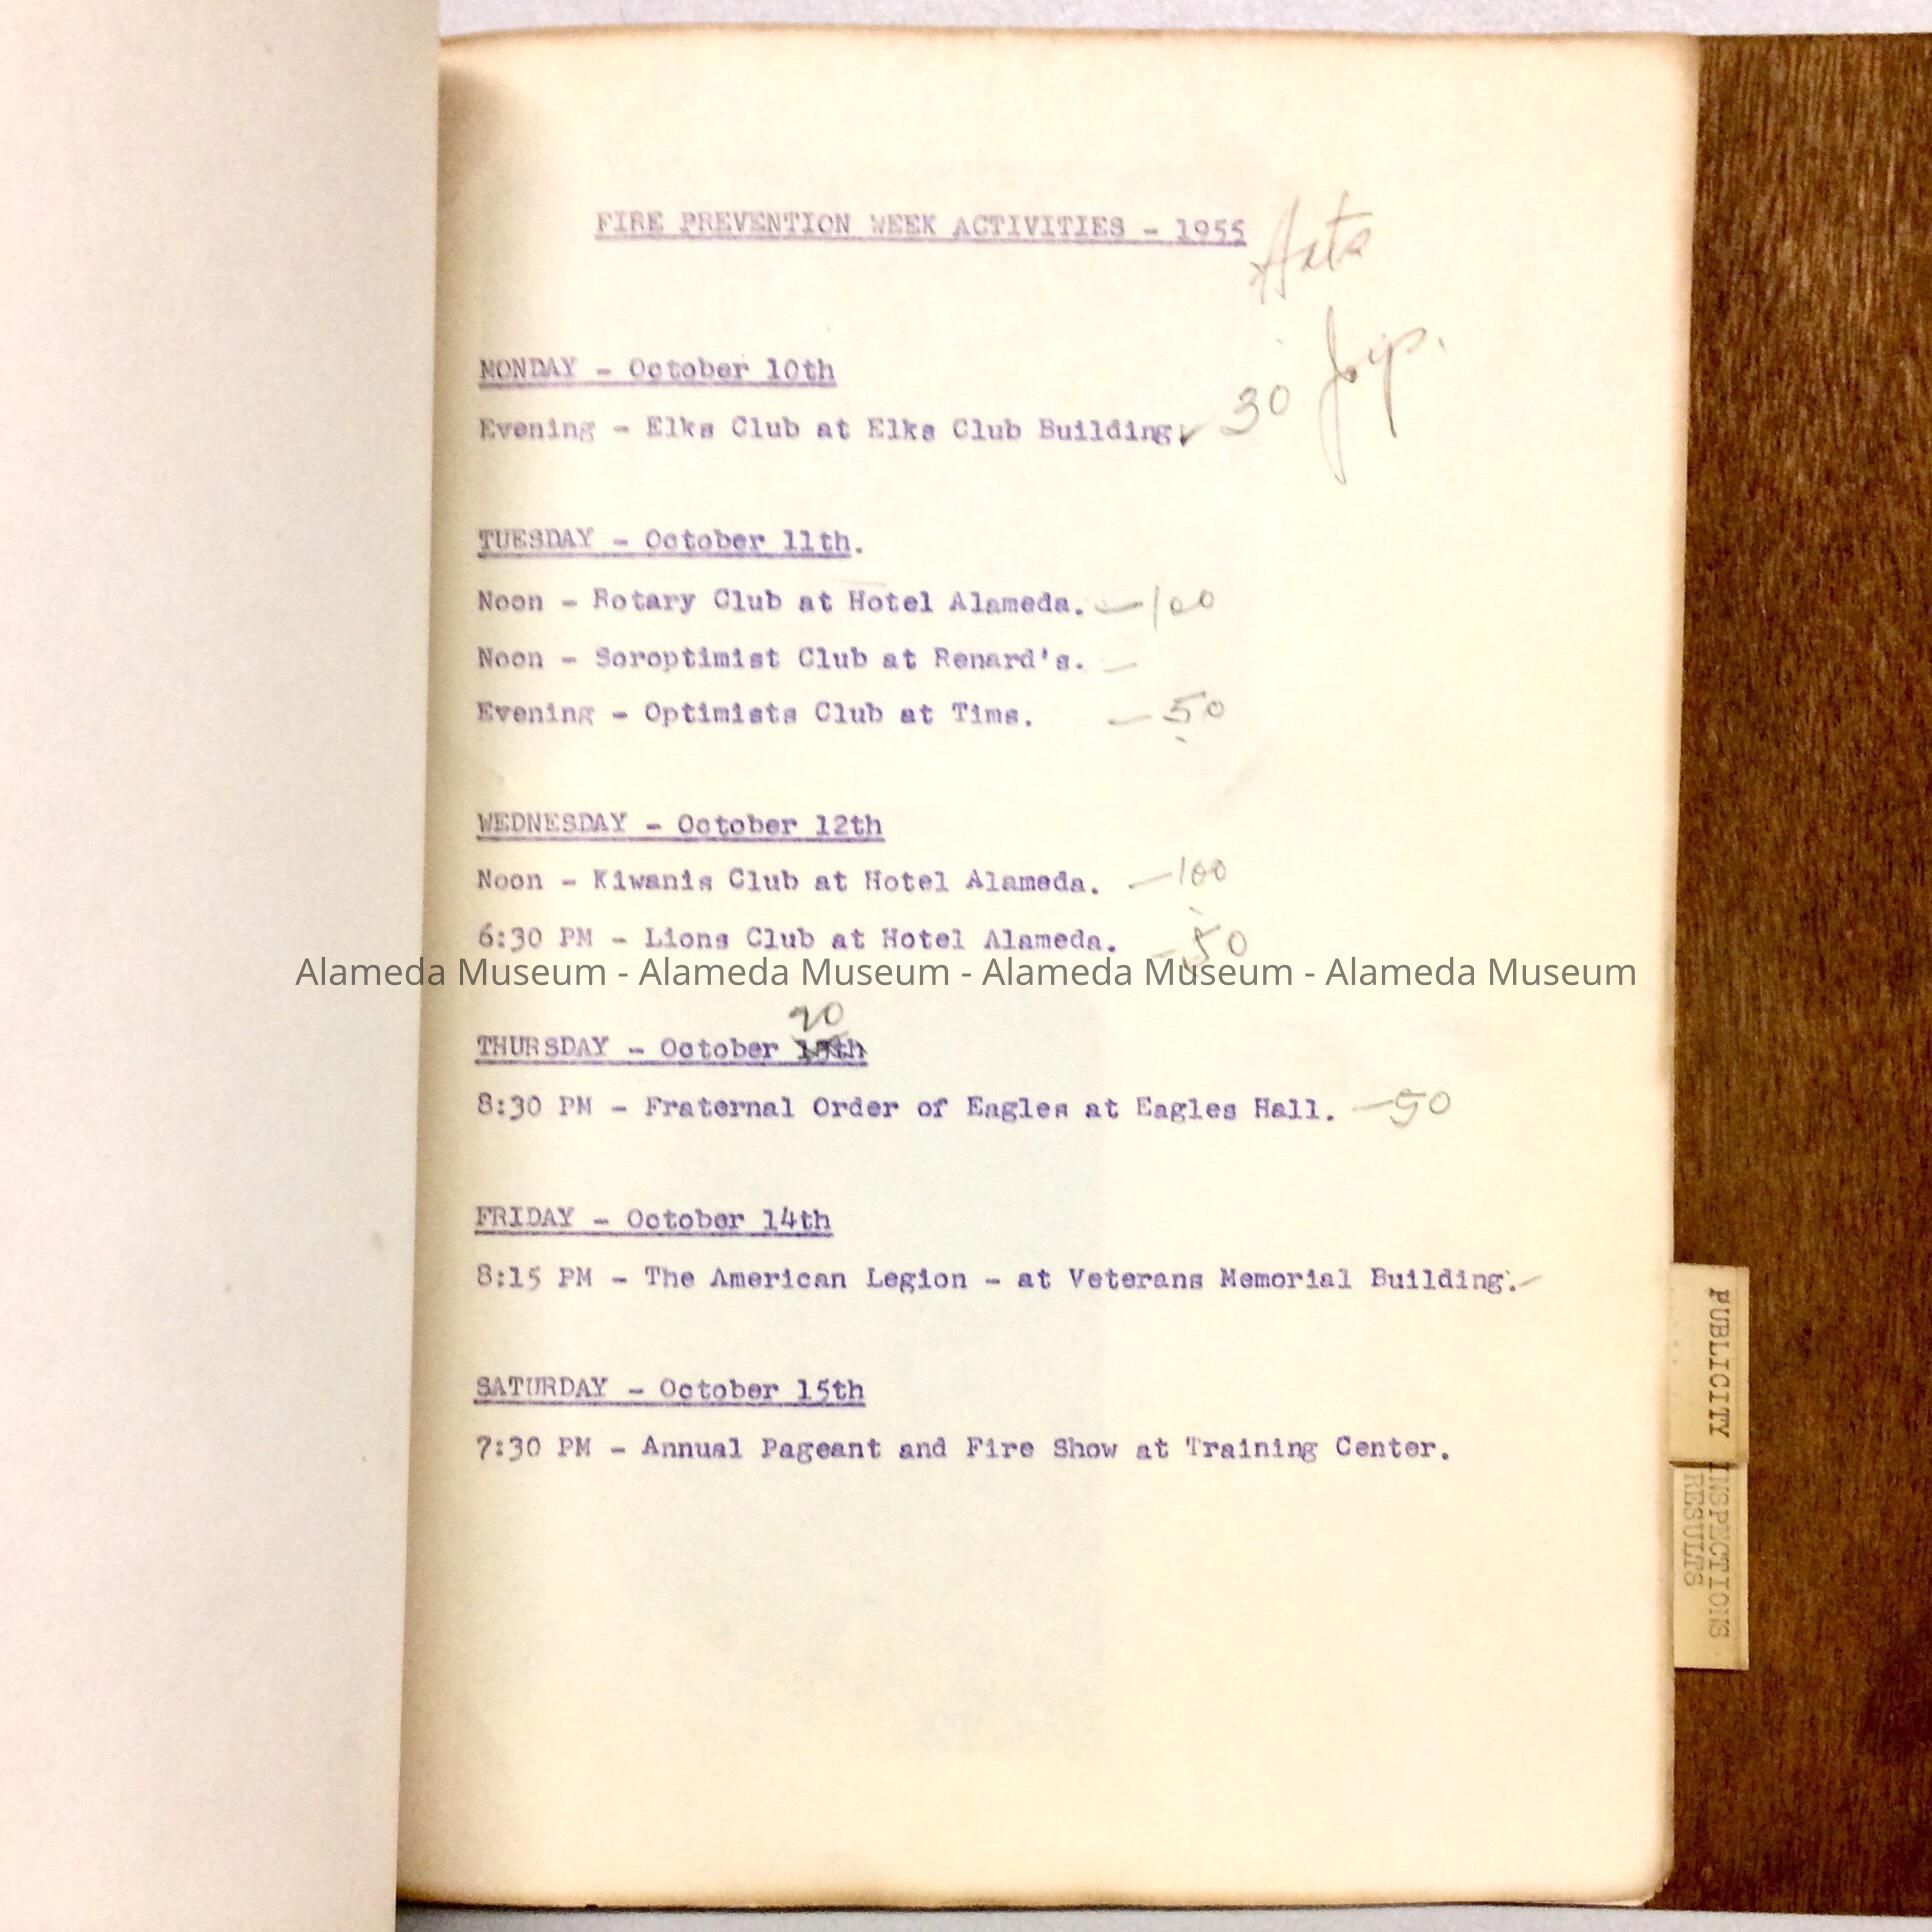 FIRE PREVENTION WEEK ACTIVITIES - 1955
Hats
MONDAY - October 10th
Evening - Elks Club at Elks Club Building. 30
TUESDAY - October 11th.
Noon - Rotary Club at Hotel Alameda. — 100
Noon - Soroptimist Club at Renard's. —
Evening - Optimists Club at Tims. — 50
WEDNESDAY - October 12th
Noon - Kiwanis Club at Hotel Alameda. — 100
6:30 PM - Lions Club at Hotel Alameda. - 50
Alameda Museum - Alameda Museum - Alameda Museum - Alameda Museum
20
THURSDAY - October 13th
8:30 PM - Fraternal Order of Eagles at Eagles Hall. — 50
FRIDAY - October 14th
8:15 PM - The American Legion - at Veterans Memorial Building.
SATURDAY - October 15th
7:30 PM - Annual Pageant and Fire Show at Training Center.
PUBLICITY
INSPECTIONS
RESULTS